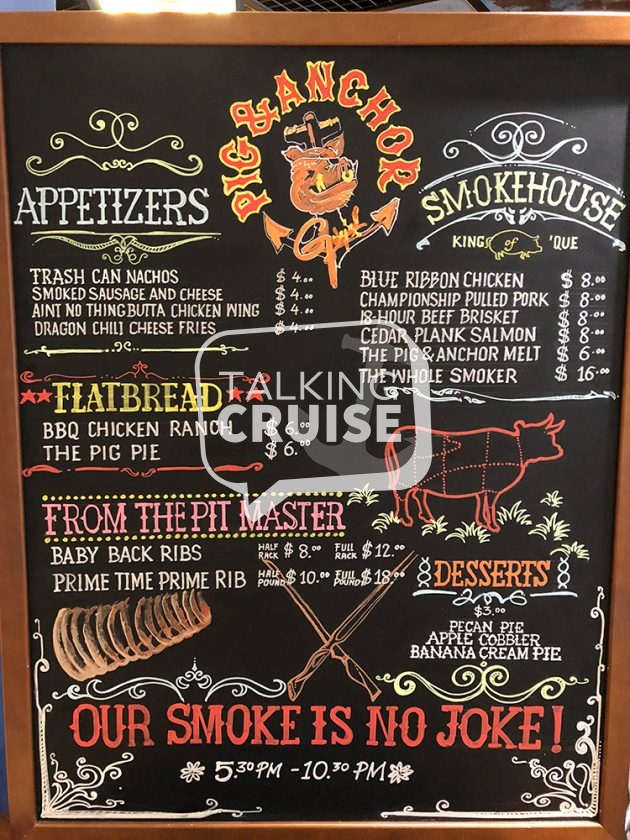 PIG & ANCHOR
APPETIZERS
TRASH CAN NACHOS $ 4.00
SMOKED SAUSAGE AND CHEESE $ 4.00
AINT NO THING BUTTA CHICKEN WING $ 4.00
DRAGON CHILI CHEESE FRIES $ 4.00
SMOKEHOUSE
KING of 'QUE
BLUE RIBBON CHICKEN $ 8.00
CHAMPIONSHIP PULLED PORK $ 8.00
18-HOUR BEEF BRISKET $ 8.00
CEDAR PLANK SALMON $ 8.00
THE PIG & ANCHOR MELT $ 6.00
THE WHOLE SMOKER $ 16.00
FLATBREAD
BBQ CHICKEN RANCH $ 6.00
THE PIG PIE $ 6.00
TALKING
CRUISE
FROM THE PIT MASTER
BABY BACK RIBS HALF RACK $ 8.00 FULL RACK $ 12.00
PRIME TIME PRIME RIB HALF POUND $ 10.00 FULL POUND $ 18.00
DESSERTS
$3.00
PECAN PIE
APPLE COBBLER
BANANA CREAM PIE
OUR SMOKE IS NO JOKE!
5.30 PM - 10.30 PM